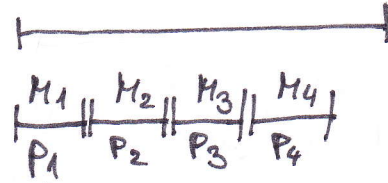 M1 M2 M3 M4
P1 P2 P3 P4